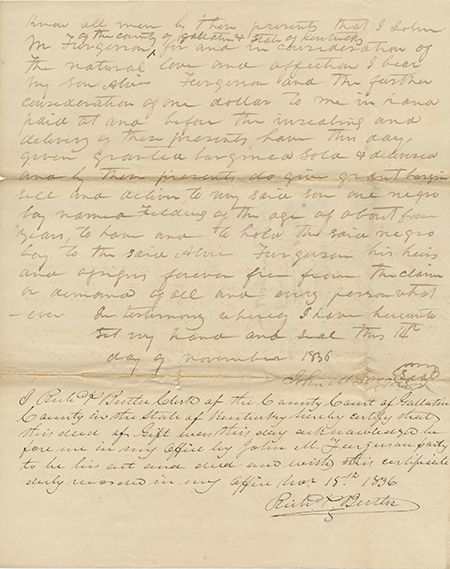 Know all men by these presents that I John
of the county of Gallatin & State of Kentucky
M Furgerson, for and in consideration of
the natural love and affection I bear
my son Alvin Furgerson and the further
consideration of one dollar to me in hand
paid at and before the unsealing and
delivery of these presents, have this day
given granted bargined Sold & delivered
and by these presents do give grant bargin
sell and deliver to my said son one negro
boy named Fielding of the age of about four
years, to have and to hold the said negro
boy to the said Alvin Furgerson his heirs
and assigns forever free from the claim
or demand of all and every person what
-ever In testimony whereof I have hereunto
set my hand and seal this 14th
day of November 1836.
John M Furgerson Seal
I Richd Butler Clerk of the County Court of Gallatin
County in the State of Kentucky hereby certify that
this deed of Gift was this day acknowledged be
fore me in my office by John M. Furgerson party
to be his act and deed and with this certificate
duly recorded in my office Nov 18th 1836
Richd Butler